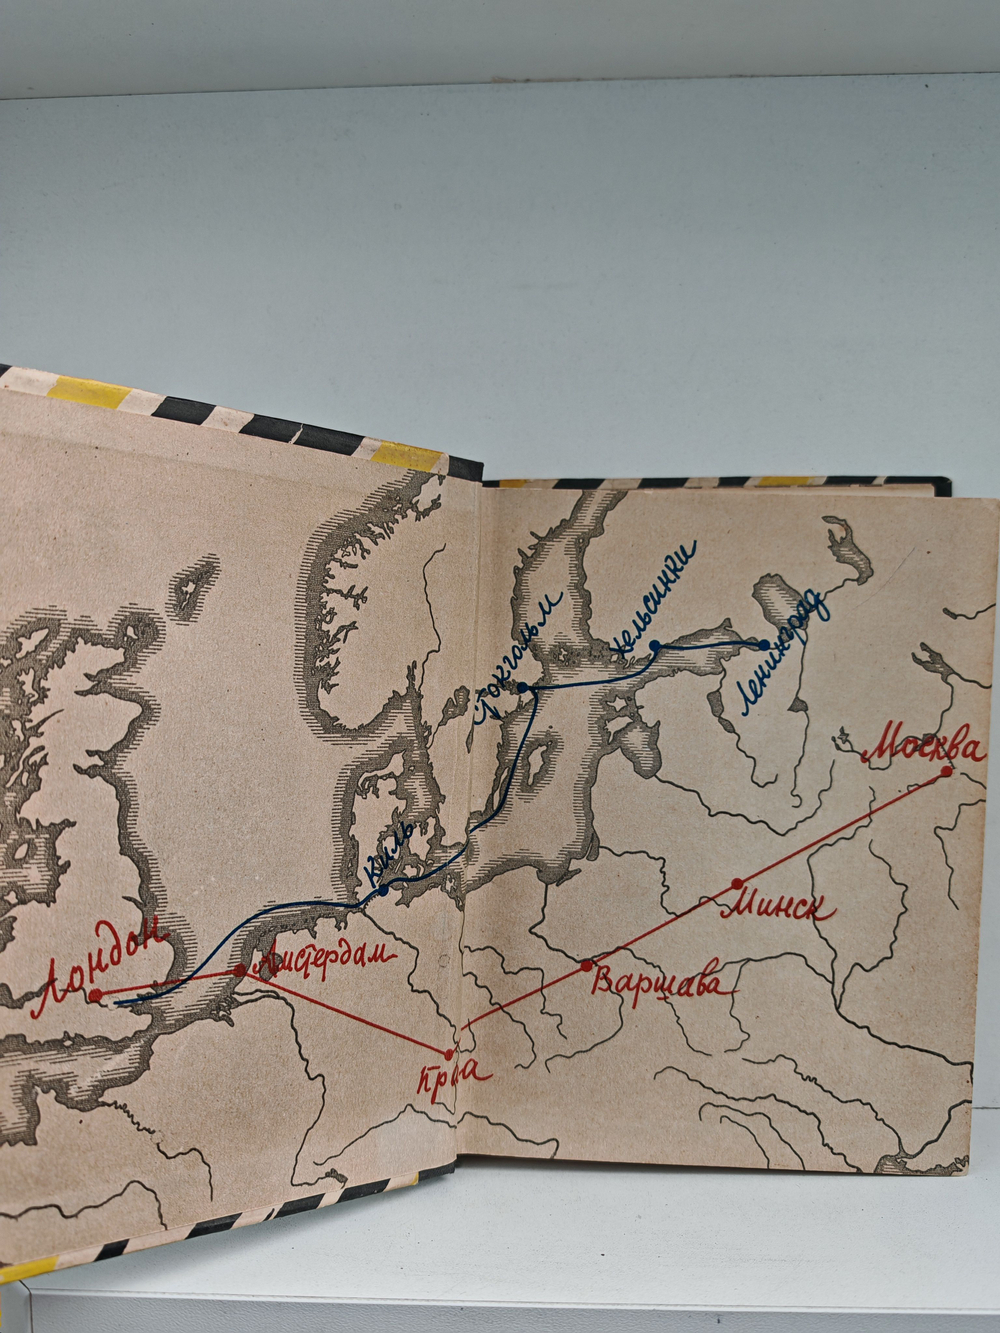 Лондон
Амстердам
Киль
Стокгольм
Хельсинки
Ленинград
Москва
Минск
Варшава